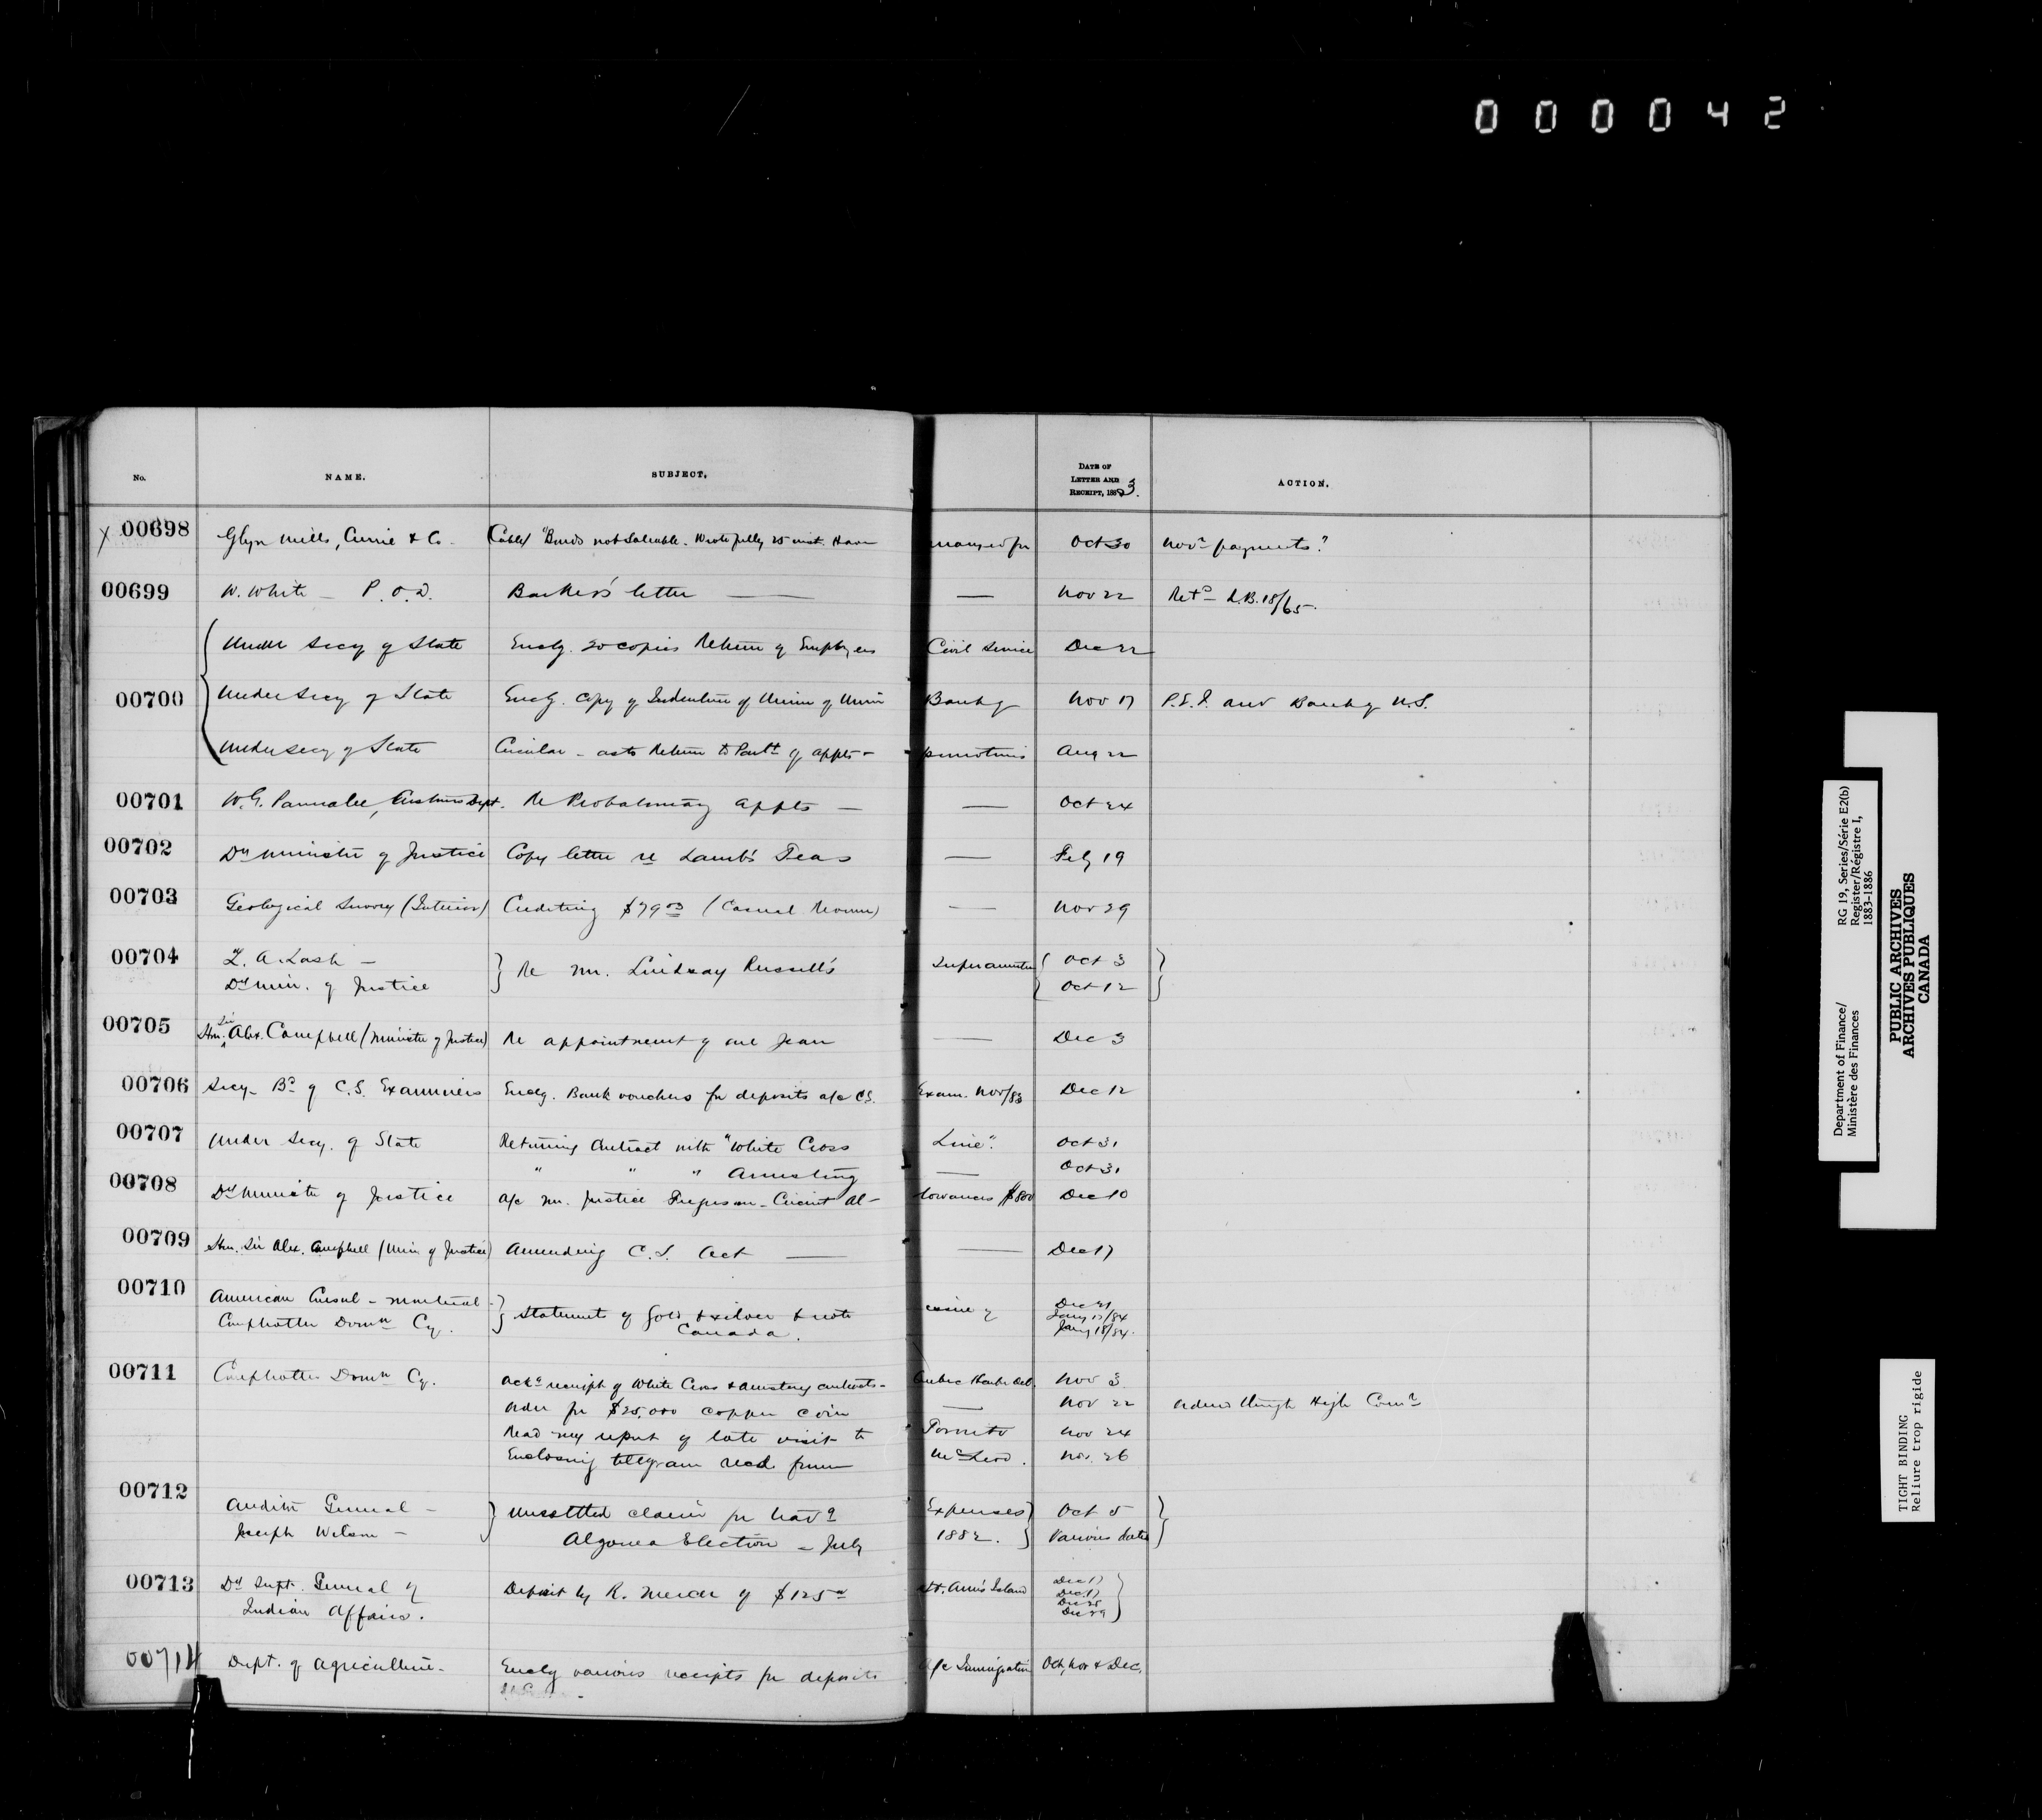 000042
No. NAME. SUBJECT. DATE OF LETTER AND RECEIPT, 1883. ACTION.
X 00698 Glyn Mills, Currie & Co. Cable "Bonds not saleable. Wrote fully 25 inst. Have arranged for Oct 30 Novr payments?
00699 W. White — P.O.D. letter — — Nov 22 Retd L.B. 18/65.
Under Secy of State Enclg. 20 copies Return of Employees Civil Service Dec 22
00700 Under Secy of State Enclg. Copy of Indenture of Union of Union Bank of Nov 17 P.E.I. and Bank of N.S.
Under Secy of State Circular — as to Return to Parlt of appts — promotions Aug 22
00701 W.G. Parmalee, Customs Dept. Re Probationary appts — — Oct 24
00702 Dy Minister of Justice Copy letter re Lamb's Teas — Feby 19
00703 Geological Survey (Interior) Crediting $79 (Casual Revenue) — Nov 29
00704 Z. A. Lash —
Dy Min. of Justice } Re Mr. Lindsay Russell's Superannuation { Oct 3
Oct 12 }
00705 Hon. Sir Alex. Campbell (Minister of Justice) Re appointment of one Jean — Dec 3
00706 Secy Bd of C.S. Examiners Enclg. Bank vouchers for deposits a/c C.S. Exam. Nov/83 Dec 12
00707 Under Secy. of State Returning Contract with "White Cross Line". Oct 31
" " " Armstrong — Oct 31
00708 Dy Minister of Justice a/c Mr. Justice Ferguson — Circuit Al- lowances $800 Dec 10
00709 Hon. Sir Alex. Campbell (Min of Justice) Amending C.S. Act — — Dec 17
00710 American Consul — Montreal —
Comptroller Domn Cy. } Statements of Gold & silver & note
Canada. Dec 21
Jany 17/84
Jany 18/84.
00711 Comptroller Domn Cy. Ackg receipt of White Cross & Armstrong contracts — Quebec Nov 3
Order for $25,000 copper coin — Nov 22 orders through High Comr
Read my report of late visit to Toronto Nov 24
Enclosing telegram recd from McLeod. Nov. 26
00712 Auditor General —
Joseph Wilson — } Unsettled claim for travg Expenses } Oct 5
Algoma Election — July 1882. } Various dates }
00713 Dy Supt. General of
Indian Affairs. Deposit by R. Mercer of $125 St. Ann's Island Dec 17
Dec 17
Dec 28
Dec 29 }
00714 Dept. of Agriculture — Enclg various receipts for deposits a/c Immigration Oct, Nov & Dec.
Department of Finance/
Ministère des Finances
RG 19, Series/Série E2(b)
Register/Régistre I,
1883-1886
PUBLIC ARCHIVES
ARCHIVES PUBLIQUES
CANADA
TIGHT BINDING
Reliure trop rigide